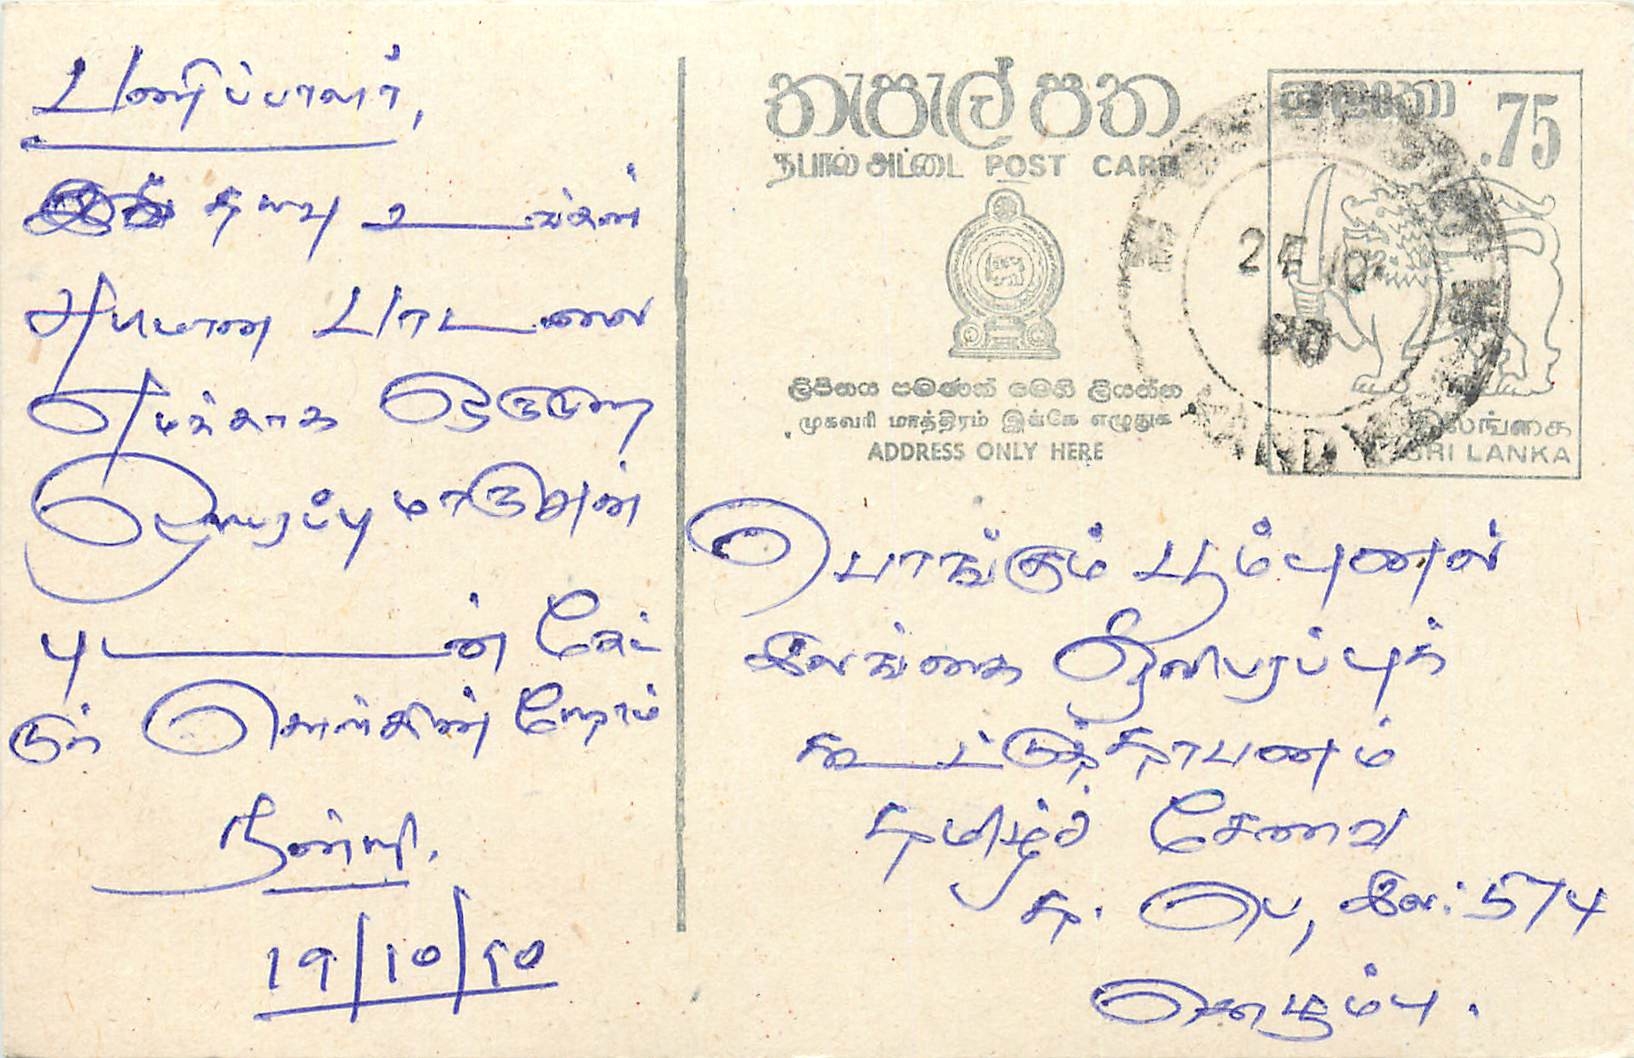 பணிப்பாளர்,
தயவு உங்கள்
அபிமான பாடலை
எமக்காக
ஒலிபரப்புமாறு அன்
புடன் கேட்
டுக் கொள்கின்றோம்
நன்றி.
19/10/90
තැපැල් පත
.75
தபால் அட்டை POST CARD
24 10
90
ලිපිනය පමණක් මෙහි ලියන්න
முகவரி மாத்திரம் இங்கே எழுதுக
ADDRESS ONLY HERE
இலங்கை
SRI LANKA
பொங்கும் பூம்புனல்
இலங்கை ஒலிபரப்புக்
கூட்டுத்தாபனம்
தமிழ்ச் சேவை
த. பெ, இல: 574
கொழும்பு.